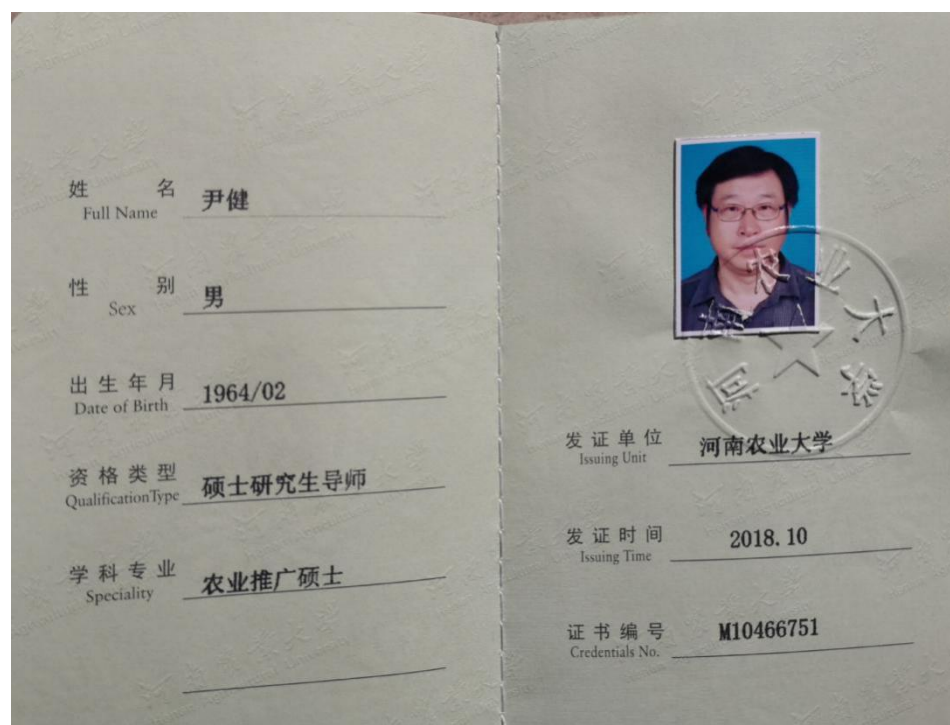 姓 名
Full Name
尹健
性 别
Sex
男
出生年月
Date of Birth
1964/02
资格类型
QualificationType
硕士研究生导师
学科专业
Speciality
农业推广硕士
河南农业大学
发证单位
Issuing Unit
河南农业大学
发证时间
Issuing Time
2018.10
证书编号
Credentials No.
M10466751